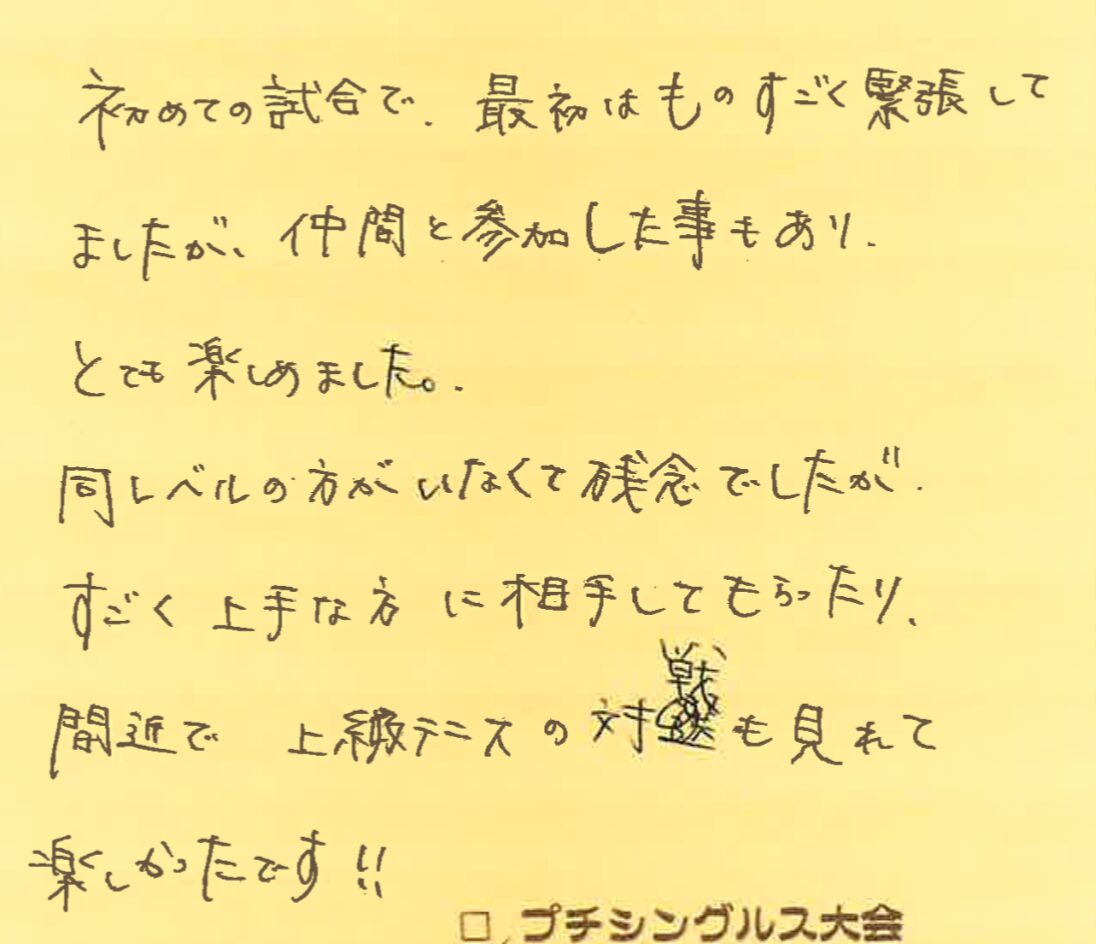 初めての試合で、最初はものすごく緊張して
ましたが、仲間と参加した事もあり、
とても楽しめました。
同レベルの方がいなくて残念でしたが、
すごく上手な方に相手してもらったり、
間近で 上級テニスの対戦も見れて
楽しかったです!!
□、プチシングルス大会